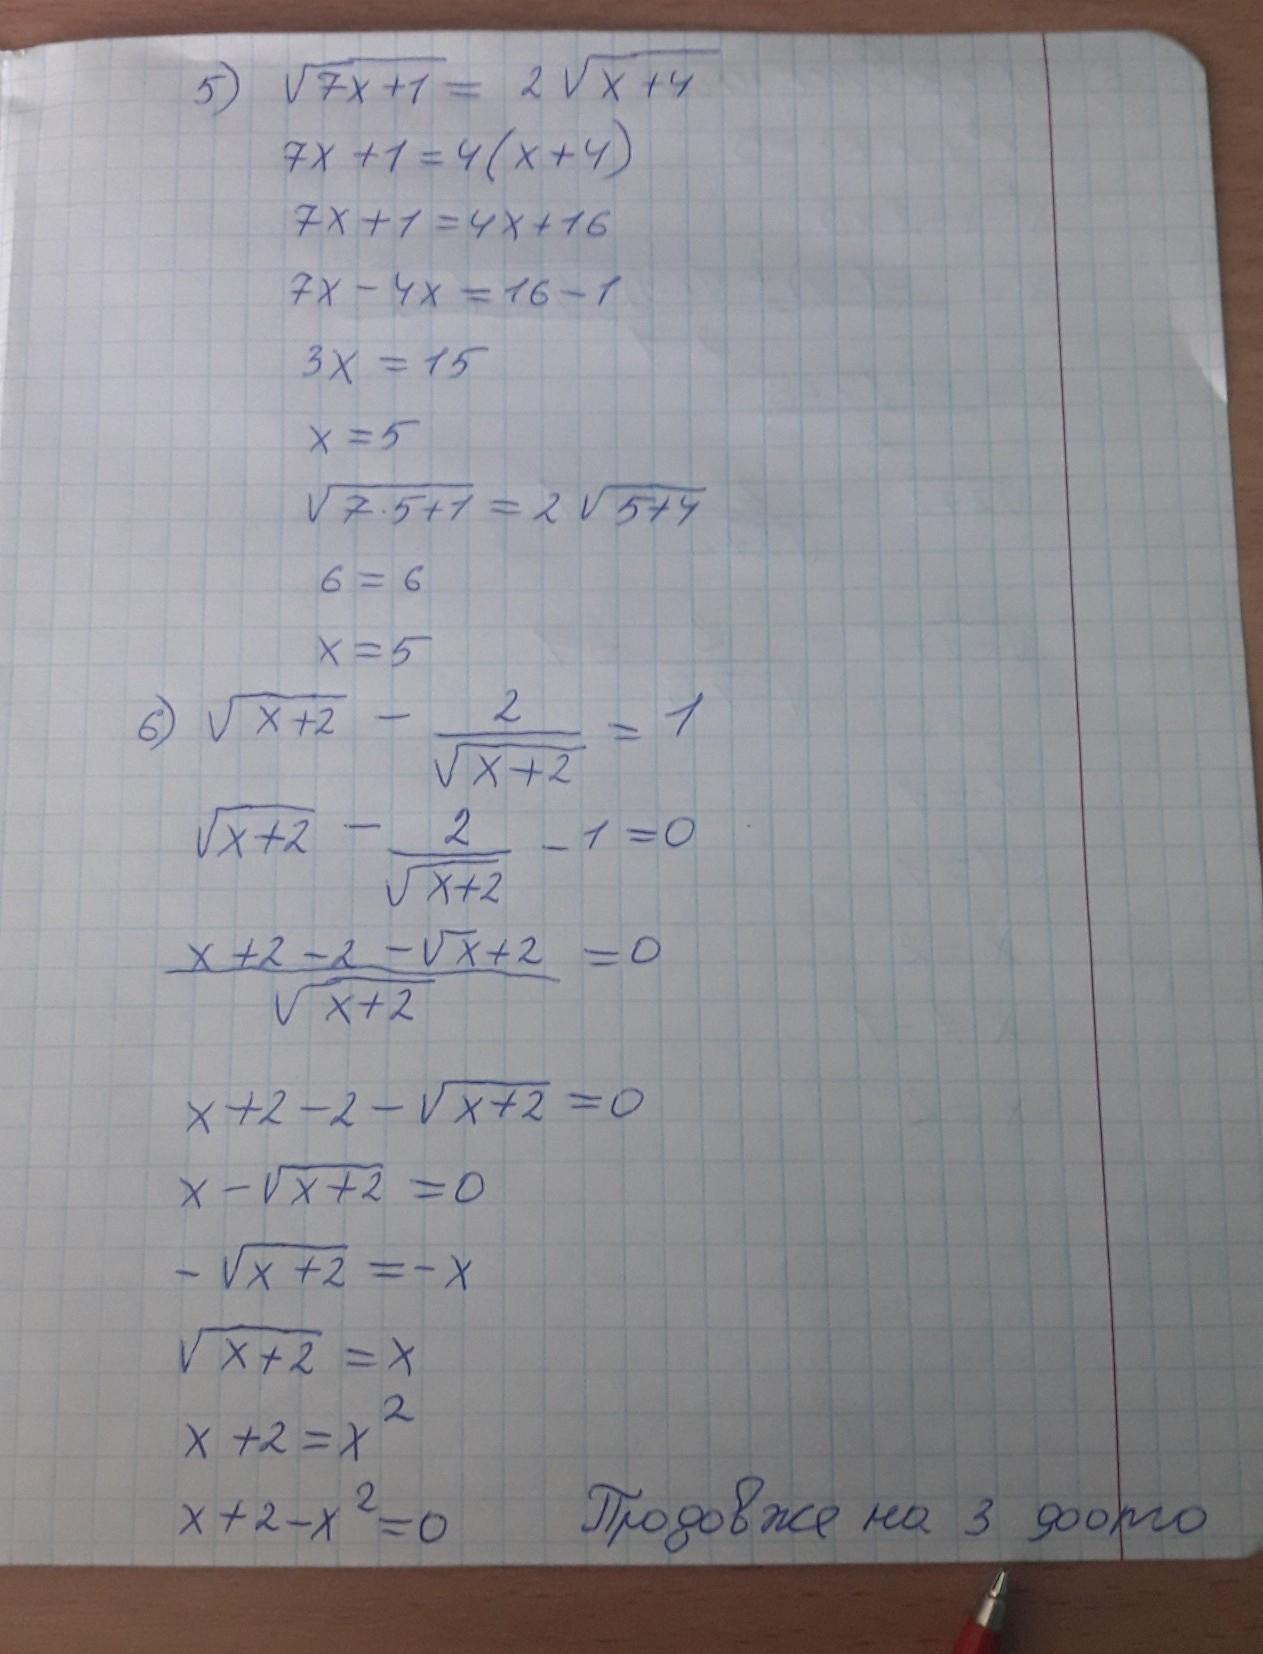 5) √(7x+1) = 2√(x+4)
7x+1=4(x+4)
7x+1=4x+16
7x-4x=16-1
3x=15
x=5
√(7·5+1) = 2√(5+4)
6=6
x=5
6) √(x+2) - 2/√(x+2) = 1
√(x+2) - 2/√(x+2) - 1 = 0
(x+2-2-√x+2)/√(x+2) = 0
x+2-2-√(x+2) = 0
x-√(x+2) = 0
-√(x+2) = -x
√(x+2) = x
x+2=x²
x+2-x²=0 Продовже на 3 фото